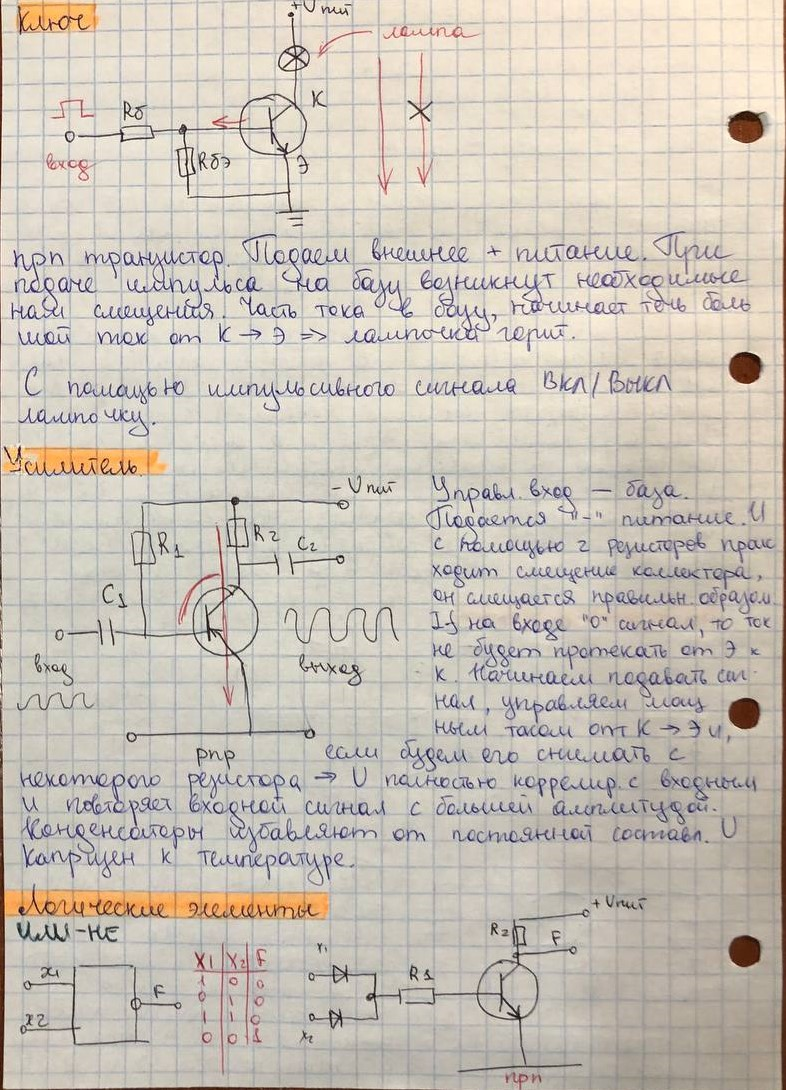 Ключ
+Uпит
лампа
К
Rб
вход
Rбэ
Э
npn транзистор. Подаем внешнее + питание. При
подаче импульса на базу возникнут необходимые
нам смещения. Часть тока в базу, начинает течь боль
шой ток от К → Э => лампочка горит.
С помощью импульсивного сигнала Вкл/Выкл
лампочку.
Усилитель.
- Uпит
R1
R2
C2
C1
вход
выход
pnp
Управл. вход — база.
Подается "-" питание. И
с помощью 2 резисторов
ходит смещение коллектора,
он смещается правильн. образом.
If на входе "0" сигнал, то ток
не будет протекать от Э к
К. Начинаем подавать сиг-
нал, управляем мощ
ным током от К → Э и,
если будем его снимать с
некоторого резистора → U полностью коррелир. с входным
и повторяет входной сигнал с большей амплитудой.
Конденсаторы избавляют от постоянной составл. U
Капризен к температуре.
Логические элементы
ИЛИ-НЕ
x1
x2
F
X1 X2 F
1 0 0
0 1 0
1 1 0
0 0 1
x1
x2
R1
R2
F
+ Uпит
npn